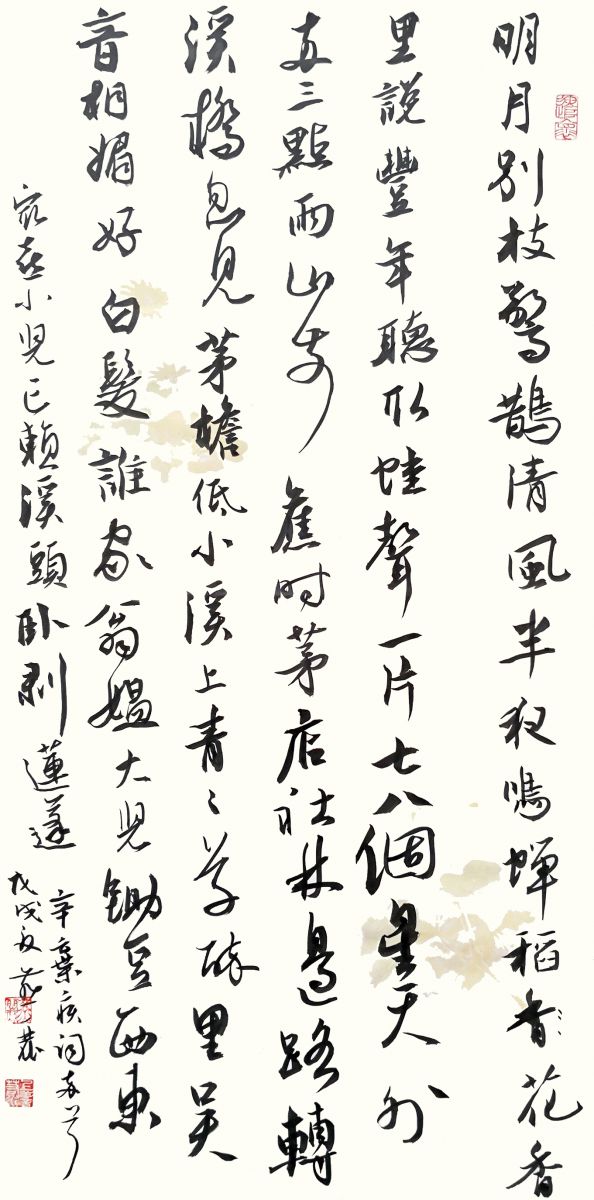 明月别枝驚鵲清風半夜鳴蟬稻香花香
里說豐年聽取蛙聲一片七八個星天外
两三點雨山前舊时茅店社林邊路轉
溪橋忽見茅檐低小溪上青〻草醉里吴
音相媚好白髮誰家翁媪大児鋤豆西東
最喜小児亡賴溪頭卧剥蓮蓬
辛棄疾詞两首
戊戌